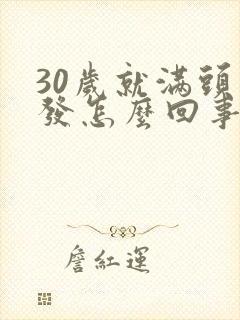 30歲就滿頭
發怎麼回事
詹紅運